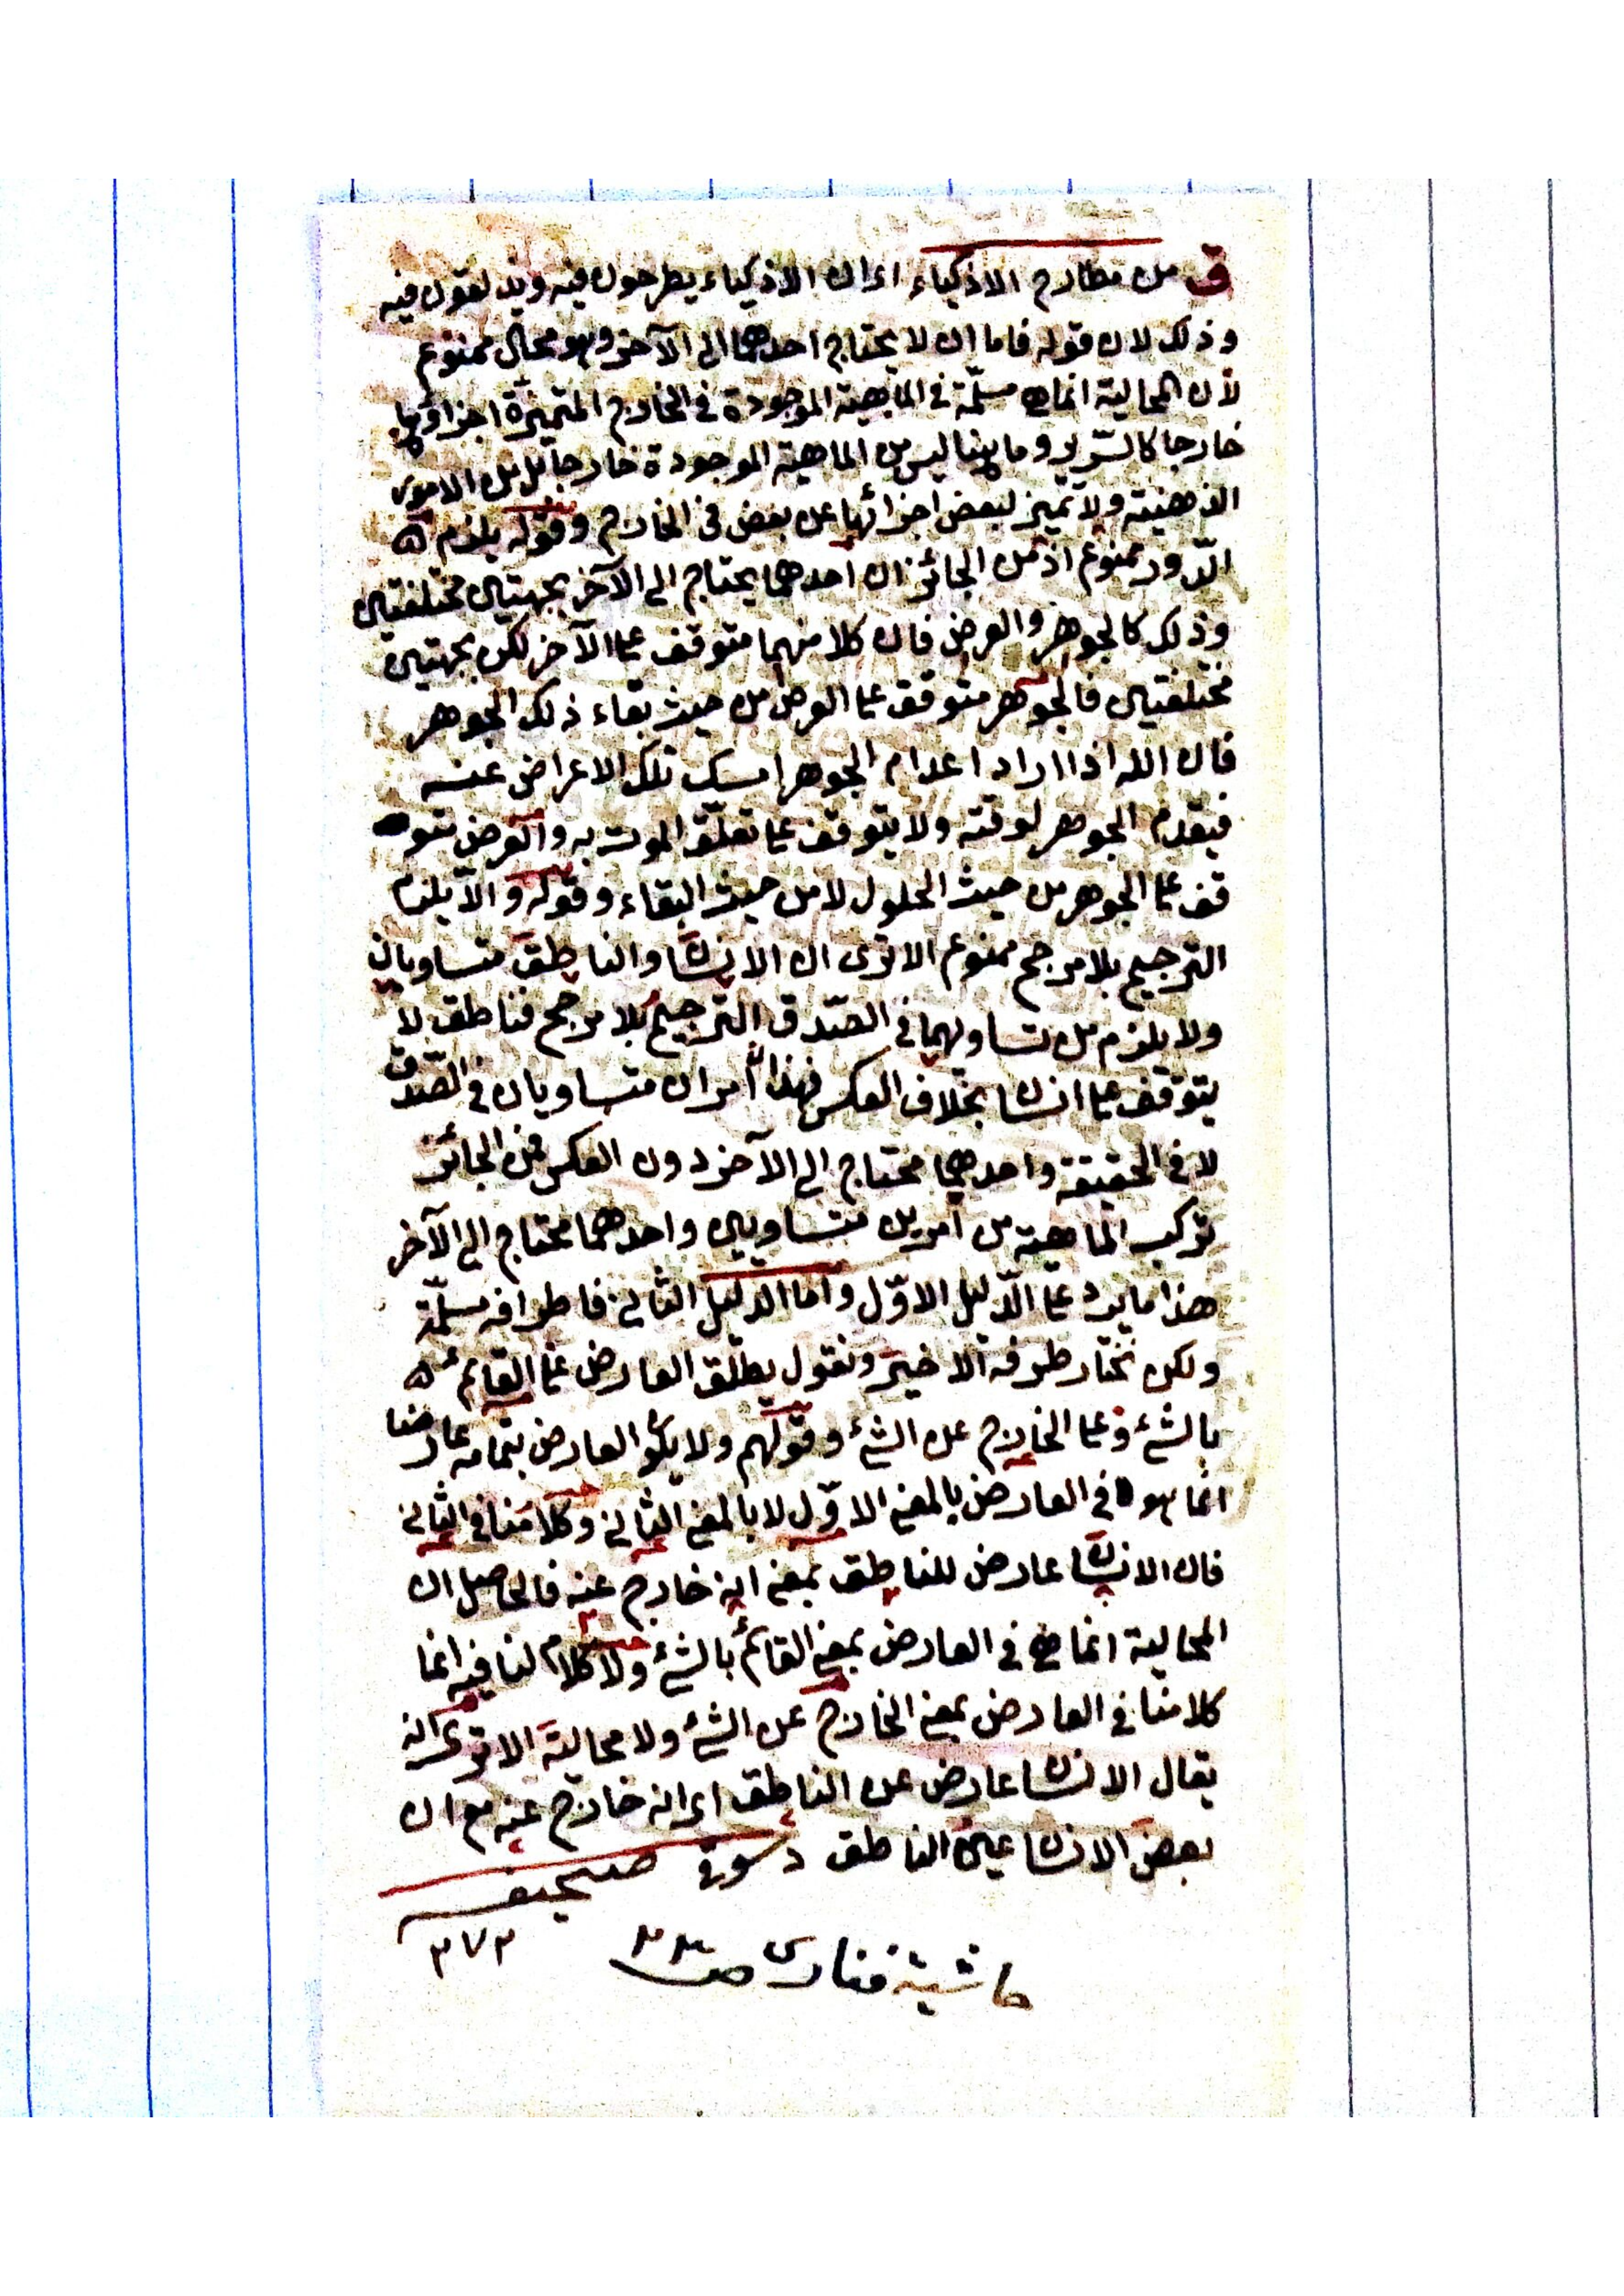 ق من مطارح الاذكياء اى ان الاذكياء يطرحون فيه ويذلقون فيه
وذلك لان قوله فاما ان لا يحتاج احدهما الى الآخر وهو محال ممنوع
لأن المحالية انما هى مسلّمة فى الماهية الموجودة فى الخارج المتميزة اجزاؤها
خارجا كالسّرير وما هنا ليس من الماهية الموجودة خارجا بل من الامور
الذهنية ولا تميز لبعض اجزائها عن بعض فى الخارج وقوله يلزم
الدّور ممنوع اذ من الجائز ان احدهما يحتاج الى الآخر بجهتين مختلفتين
وذلك كالجوهر والعرض فان كلا منهما متوقف على الآخر لكن بجهتين
مختلفتين فالجوهر متوقف على العرض من حيث بقاء ذلك الجوهر
فان الله اذا اراد اعدام الجوهر امسك تلك الاعراض عنه
فيعدم الجوهر لوقته ولا يتوقف على تعلّق الموت به والعرض متو
قف على الجوهر من حيث الحلول لا من حيث البقاء وقوله والّا يلزم
الترجيح بلا مرجح ممنوع الا ترى ان الانسان والناطق متساويان
ولا يلزم من تساويهما فى الصّدق الترجيح بلا مرجح فناطق لا
يتوقف على انسان بخلاف العكس فهذا أمران متساويان فى الصّدق
لا فى الحقيقة واحدهما محتاج الى الآخر دون العكس فمن الجائز
تركب الماهية من أمرين متساويين واحدهما محتاج الى الآخر
هذا ما يرد على الدّليل الاوّل واما الدليل الثانى فاطرافه مسلّمة
ولكن نختار طرفه الاخير ونقول يطلق العارض على القائم
بالشئ وعلى الخارج عن الشئ وقولهم ولا يكون العارض بتمامه عارضا
انما هو فى العارض بالمعنى الاوّل لا بالمعنى الثانى وكلامنا فى الثانى
فان الانسان عارض للناطق بمعنى انه خارج عنه فالحاصل ان
المحالية انما هى فى العارض بمعنى القائم بالشئ ولا كلام لنا فيه انما
كلامنا فى العارض بمعنى الخارج عن الشئ ولا محالية الا ترى انه
يقال الانسان عارض عن الناطق اى انه خارج عنه مع ان
بعض الانسان عين الناطق دسوقى صحيفه
٣٧٢
حاشية فنارى صـ ٢٢